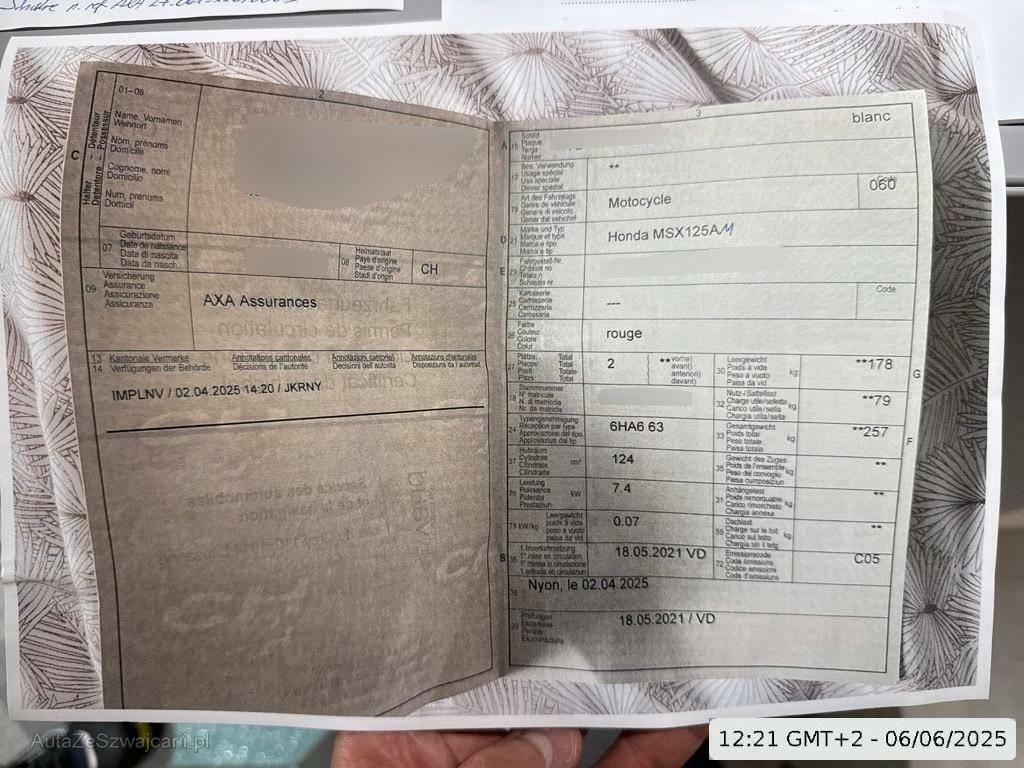 01-06
2
Name, Vornamen
Wohnort
Nom, prénoms
Domicile
Cognome, nomi
Domicilio
Num, prenums
Domicil
C
Halter
Détenteur
Detentore
Possessur
07
Geburtsdatum
Date de naissance
Data di nascita
Data da nasch.
08
Heimatstaat
Pays d'origine
Paese d'origine
Stadi d'origin
CH
09
Versicherung
Assurance
Assicurazione
Assicuranza
AXA Assurances
13 Kantonale Vermerke Annotations cantonales Annotazioni cantonali Annotaziuns chantunalas
14 Verfügungen der Behörde Décisions de l'autorité Decisioni dell'autorità Disposiziuns da l'autoritad
IMPLNV / 02.04.2025 14:20 / JKRNY
3
blanc
A 15
Schild
Plaque
Targa
Numer
17
Bes. Verwendung
Usage spécial
Uso speciale
Diever spezial
**
19
Art des Fahrzeugs
Genre de véhicule
Genere di veicolo
Gener dal vehichel
Motocycle
Code
060
D 21
Marke und Typ
Marque et type
Marca e tipo
Marca e tip
Honda MSX125AM
E 23
Fahrgestell-Nr.
Châssis no
Telaio n.
Schassis nr.
25
Karosserie
Carrosserie
Carrozzeria
Carossaria
---
Code
26
Farbe
Couleur
Colore
Colur
rouge
27
Plätze: Total
Places: Total
Posti: Totale
Plazs: Total
2
(**vorne)
avant)
anteriori)
davant)
30
Leergewicht
Poids à vide
Peso a vuoto
Paisa da vid
kg
**178
G
18
Stammnummer
N° matricule
N. di matricola
Nr. da matricla
32
Nutz-/Sattellast
Charge utile/sellette
Carico utile/sella
Chargia utila/sella
kg
**79
24
Typengenehmigung
Réception par type
Approvazione del tipo
Approvaziun dal tip
6HA6 63
33
Gesamtgewicht
Poids total
Peso totale
Paisa totala
kg
**257
F
37
Hubraum
Cylindrée
Cilindrata
Cilindrada
cm³
124
35
Gewicht des Zuges
Poids de l'ensemble
Peso del convoglio
Paisa cumposiziun
kg
**
76
Leistung
Puissance
Potenza
Prestaziun
kW
7.4
31
Anhängelast
Poids remorquable
Carico rimorchiato
Chargia annexa
kg
**
78 kW/kg
Leergewicht
poids à vide
peso a vuoto
paisa da vid
0.07
55
Dachlast
Charge sur le toit
Carico sul tetto
Chargia sin il tetg
kg
**
B 36
1. Inverkehrsetzung
1re mise en circulation
1a messa in circolazione
1. entrada en circulaziun
18.05.2021 VD
72
Emissionscode
Code émissions
Codice emissioni
Code d'emissiuns
C05
38
Nyon, le 02.04.2025
39
Prüfungen
Expertises
Perizie
Examinaziuns
18.05.2021 / VD
AutaZeSzwajcarii.pl
12:21 GMT+2 - 06/06/2025